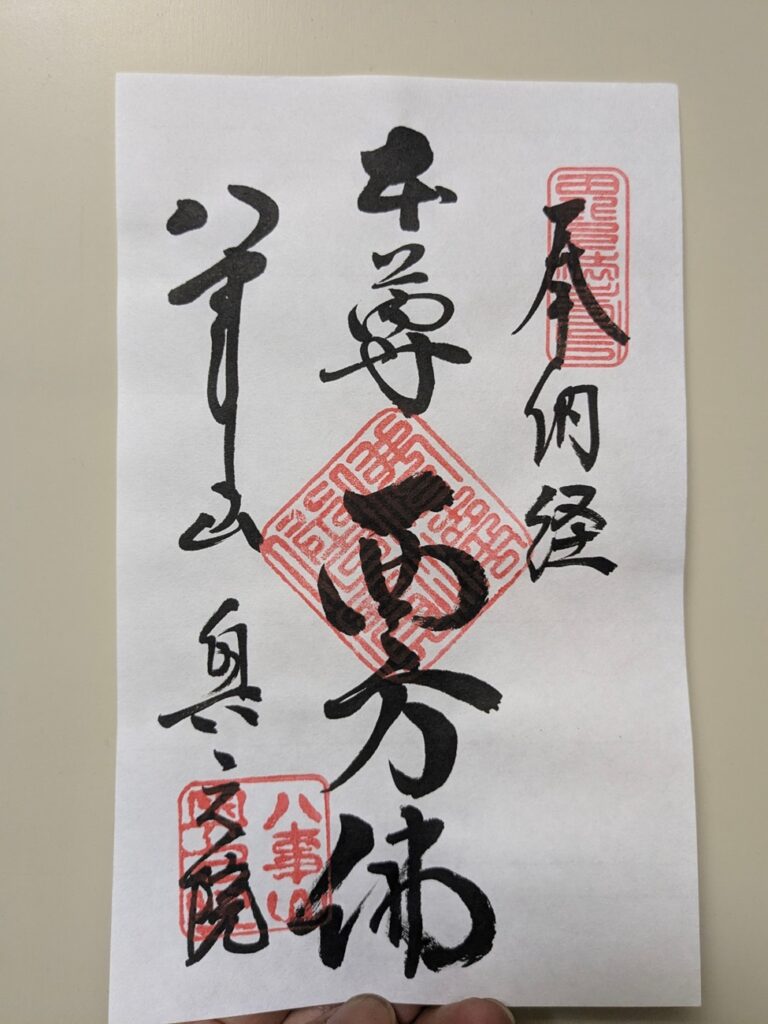 奉納経
本尊
西方佛
八事山 奥之院
八事山